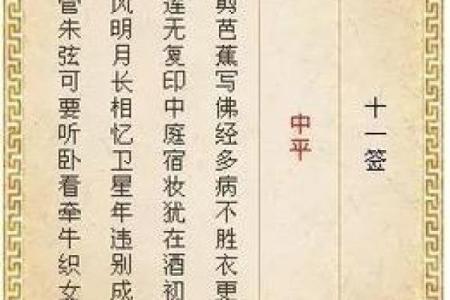 十一签
中平
剪芭蕉写佛经多病不胜衣更
莲无复印中庭宿妆犹在酒初
风明月长相忆卫星年违别成
管朱弦可要听卧看牵牛织女